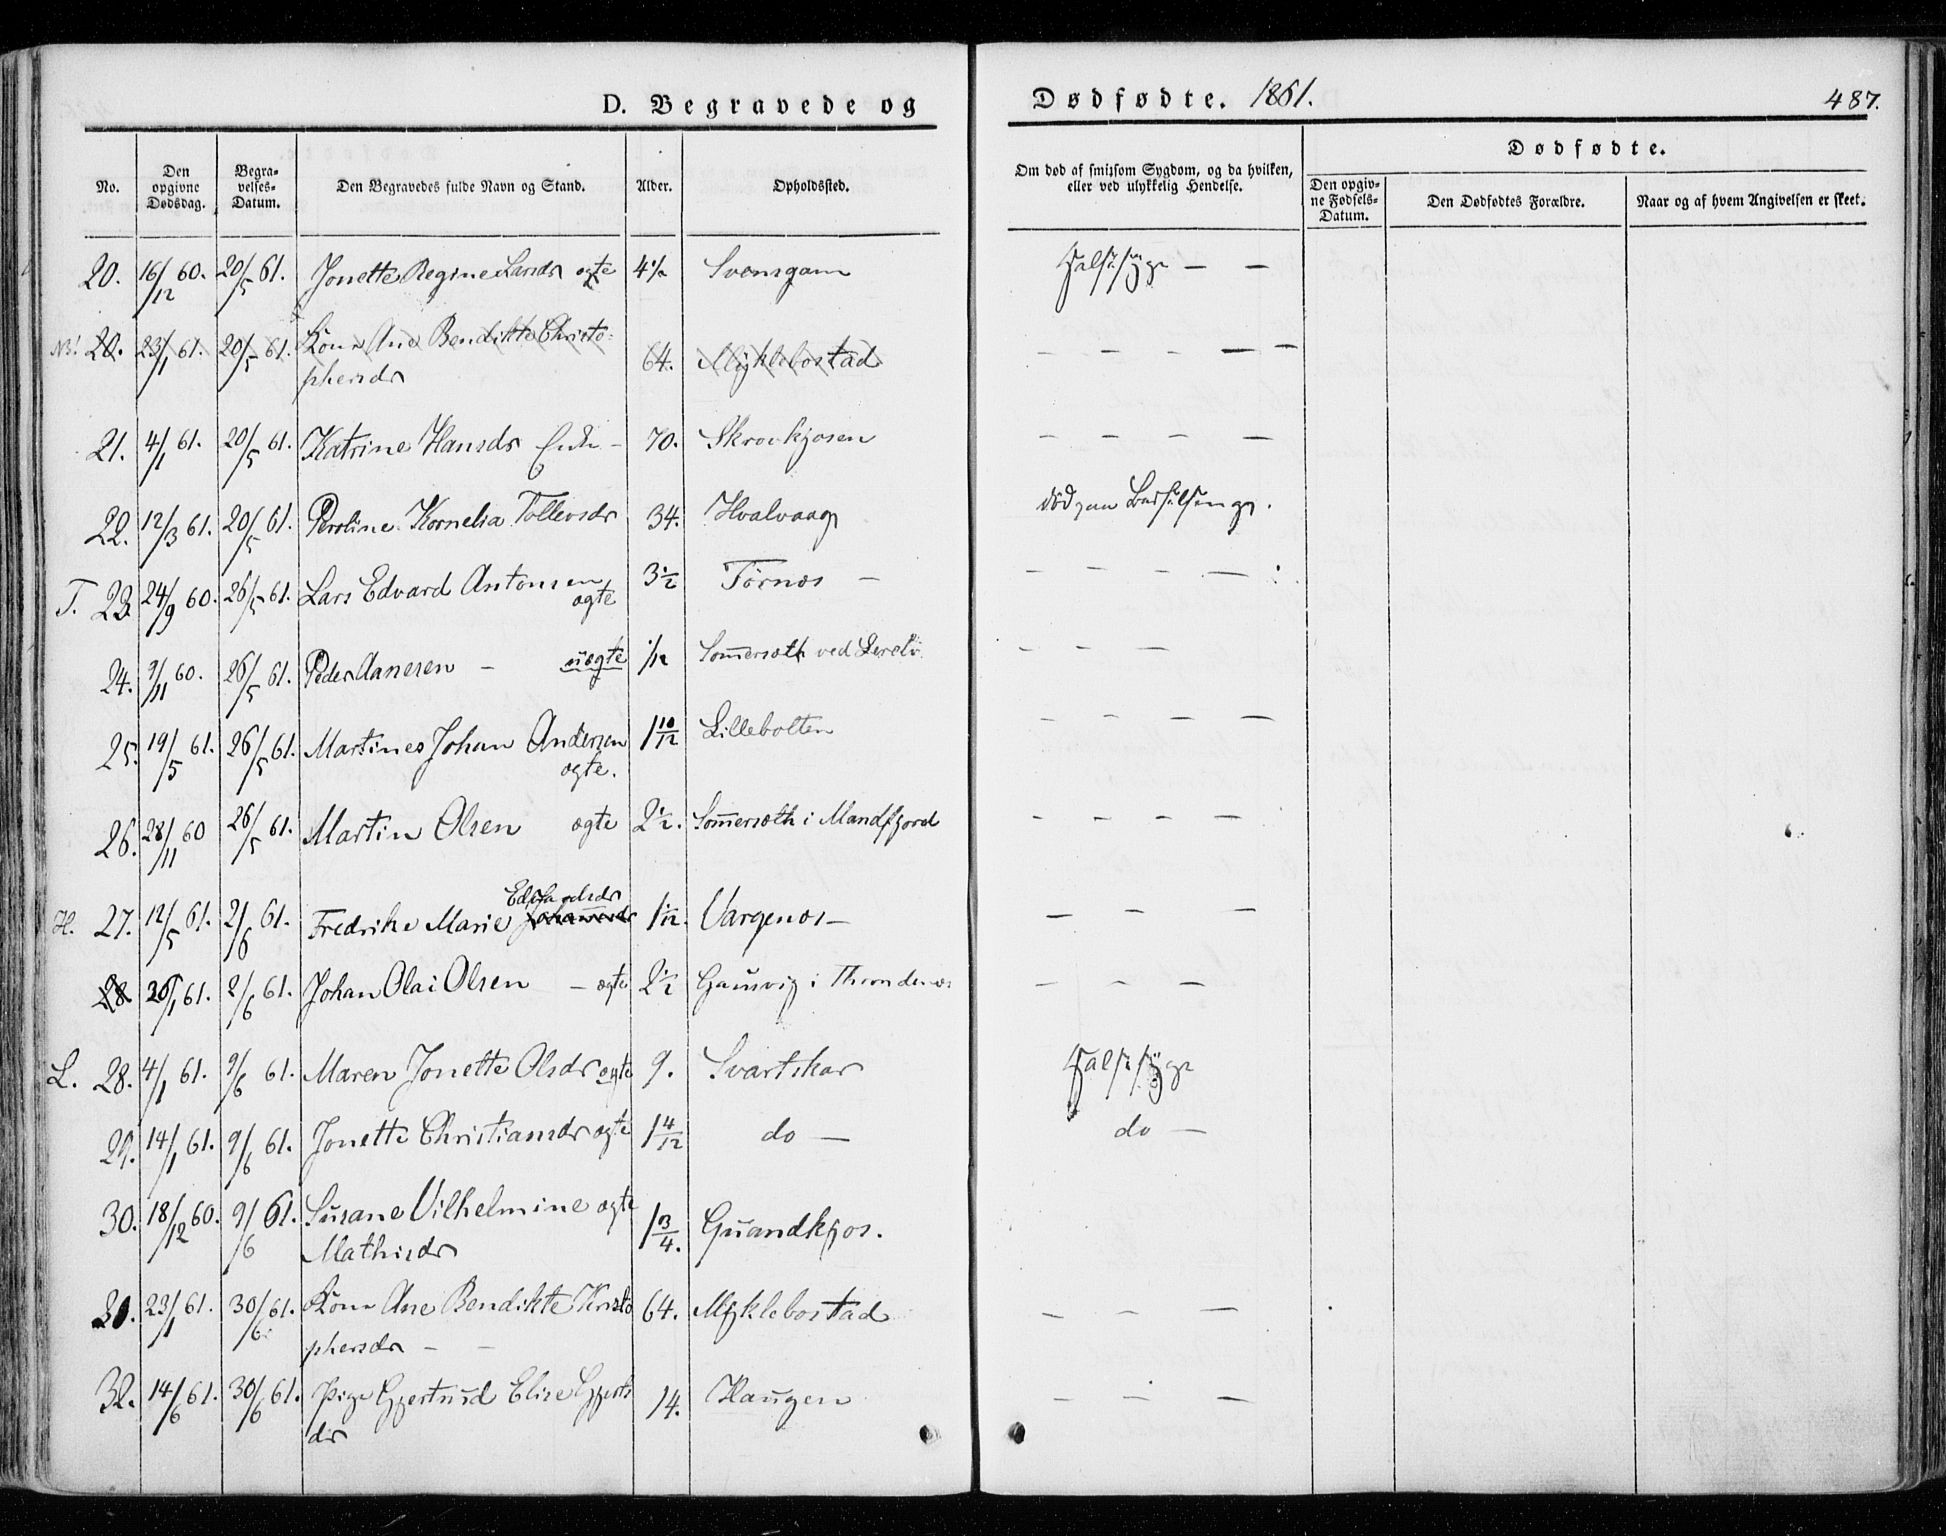 D. Begravede og Dødfødte. 1861. 487.
Dødfødte.
No. | Den opgivne Dødsdag. | Begravelses-Datum. | Den Begravedes fulde Navn og Stand. | Alder. | Opholdssted. | Om død af smitsom Sygdom, og da hvilken, eller ved ulykkelig Hendelse. | Den opgivne Fødsels-Datum. | Den Dødfødtes Forældre. | Naar og af hvem Angivelsen er skeet.
20. 16/12 60. 20/5 61. Jonette Regine Larsdr ægte Svensgam Halssyge — —
NB! 20. 23/1 61. 20/5 61. Kone Ane Bendikte Christo-
phersdr 64. Myklebostad — — — — —
21. 4/1 61. 20/5 61. Katrine Hansdr Enke — 70. Skrovkjosen — — — —
22. 12/3 61. 20/5 61. Peroline Kornelia Tollevsdr 34. Hvalvaag død paa Barselseng.
T. 23. 24/9 60. 26/5 61. Lars Edvard Antonsen 3 1/2 Tørnæs — — — — —
ægte
24. 9/11 60. 26/5 61. Peder Aanesen — uægte 1/12 Somersæth ved — — —
25. 19/5 61. 26/5 61. Martines Johan Andersen 1 10/12 Lillebolten — — — —
ægte.
26. 28/11 60 26/5 61. Martin Olsen ægte 2 1/2. Somersæth i Mandfjord — — — —
Edvardsdr
H. 27. 12/5 61. 2/6 61. Fredrike Marie Johannesdr 1 1/12. Vargenæs — — — —
28 26/1 61. 2/6 61. Johan Olai Olsen — ægte 2 1/2 Gausvig i Throndenæs — — —
L. 28. 4/1 61. 9/6 61. Maren Jonette Olsdr ægte 9. Svartskar Halssyge
29. 14/1 61. 9/6 61. Jonette Christiansdr ægte 1 4/12 do — do —
30. 18/12 60. 9/6 61. Susane Vilhelmine ægte 1 3/4. Guandkjos.
Mathisdr
31. 23/1 61. 30/6 61. Kone Ane Bendikte Kristo 64. Myklebostad — — —
phersdr — —
32. 14/6 61. 30/6 61. Pige Gjertrud Elise Gjerts 14. Haugen — — —
dr